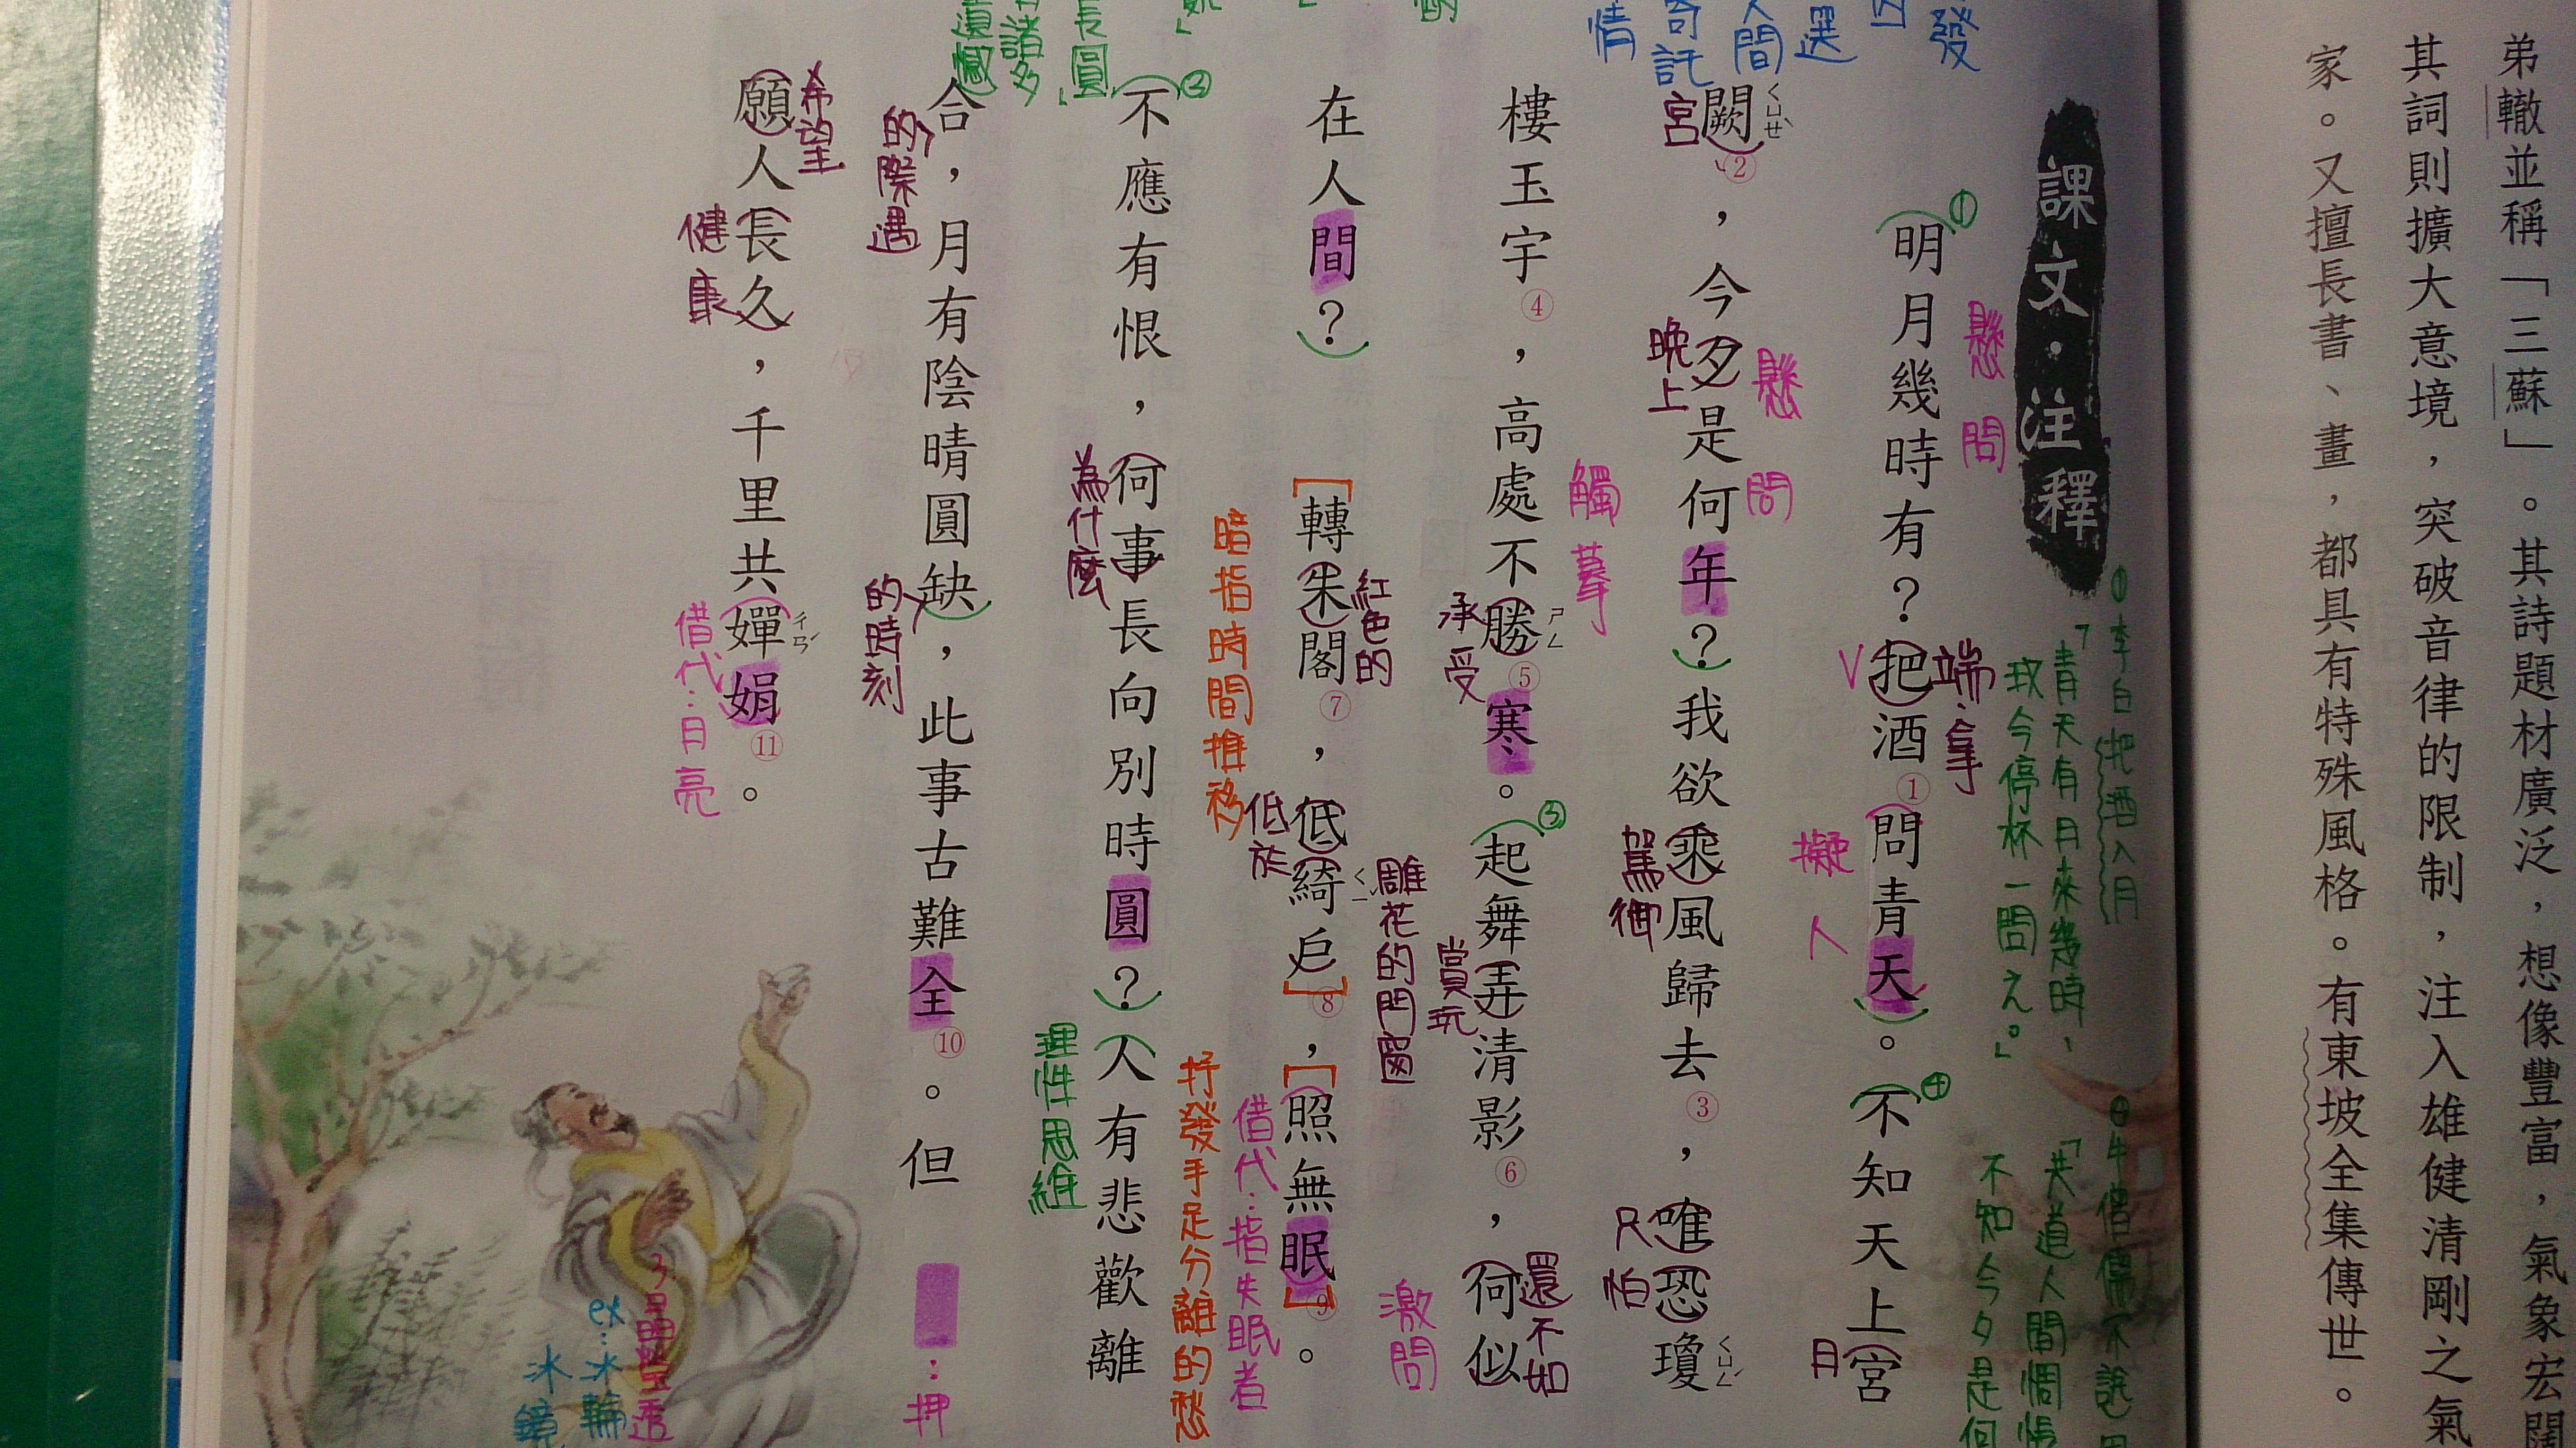 弟轍並稱「三蘇」。其詩題材廣泛，想像豐富，氣象宏闊
其詞則擴大意境，突破音律的限制，注入雄健清剛之氣
家。又擅長書、畫，都具有特殊風格。有東坡全集傳世。
課文·注釋
①李白把酒問月
「青天有月來幾時，
我今停杯一問之。」
④牛僧孺
「共道人間惆悵
不知今夕是何
①
懸問
明月幾時有？把酒①問青天。不知天上宮
端、拿
擬人
④
月
闕②，今夕是何年？我欲乘風歸去③，唯恐瓊
ㄑㄩㄝˋ
宮
懸問
晚上
駕御
只怕
ㄑㄩㄥˊ
樓玉宇④，高處不勝⑤寒。起舞弄清影⑥，何似
觸摹
ㄕㄥ
承受
③
賞玩
還不如
激問
在人間？　轉朱閣⑦，低綺戶⑧，照無眠⑨。
紅色的
ㄑㄧˇ
雕花的門窗
低於
暗指時間推移
借代：指失眠者
不應有恨，何事長向別時圓？人有悲歡離
②
為什麼
抒發手足分離的愁
理性思維
合，月有陰晴圓缺，此事古難全⑩。但
的際遇
的時刻
：押
願人長久，千里共嬋娟⑪。
希望
健康
ㄔㄢˊ
借代：月亮
ex：冰輪
冰鏡
發
選
人間
寄託
情
長圓」
諸多
遺憾